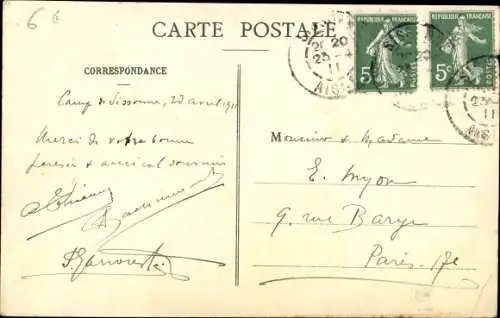 6 €
CARTE POSTALE
REPUBLIQUE FRANÇAISE
5c POSTES
REPUBLIQUE FRANÇAISE
5c POSTES
20
23-4
11
AISNE
CORRESPONDANCE
Camp de Sissonne, 23 avril 1911
Merci de votre bonne
pensée & amical souvenir
Monsieur & Madame
E. Myon
9. rue Barye
Paris. 17e